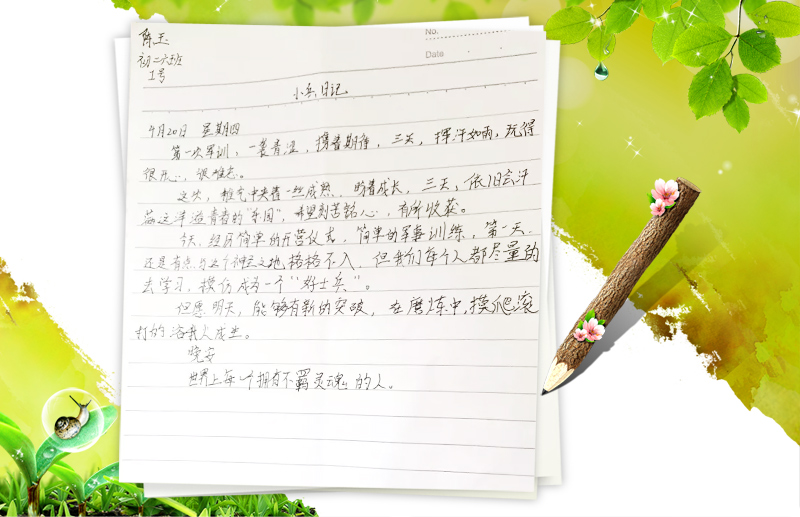 陈玉
No.
初二六班
Date
1号
小兵日记
4月20日 星期四
第一次军训,一袭青涩,携着期待,三天,挥汗如雨,玩得
很开心,很难忘。
这次,稚气中夹着一丝成熟,的着成长,三天,依旧会汗
这洋溢青春的"乐园",希望刻苦铭人心,有所收获。
今天,经历简单的开营仪式,简单的军事训练,第一天
还是有点与这个神圣之地格格不入,但我们每个人都尽量的
去学习,模仿成为一个"好士兵"。
但愿明天,能够有新的突破,在磨炼中,摸爬滚
打的洛我人成生。
晚安
世界上每一个拥有不羁灵魂的人。